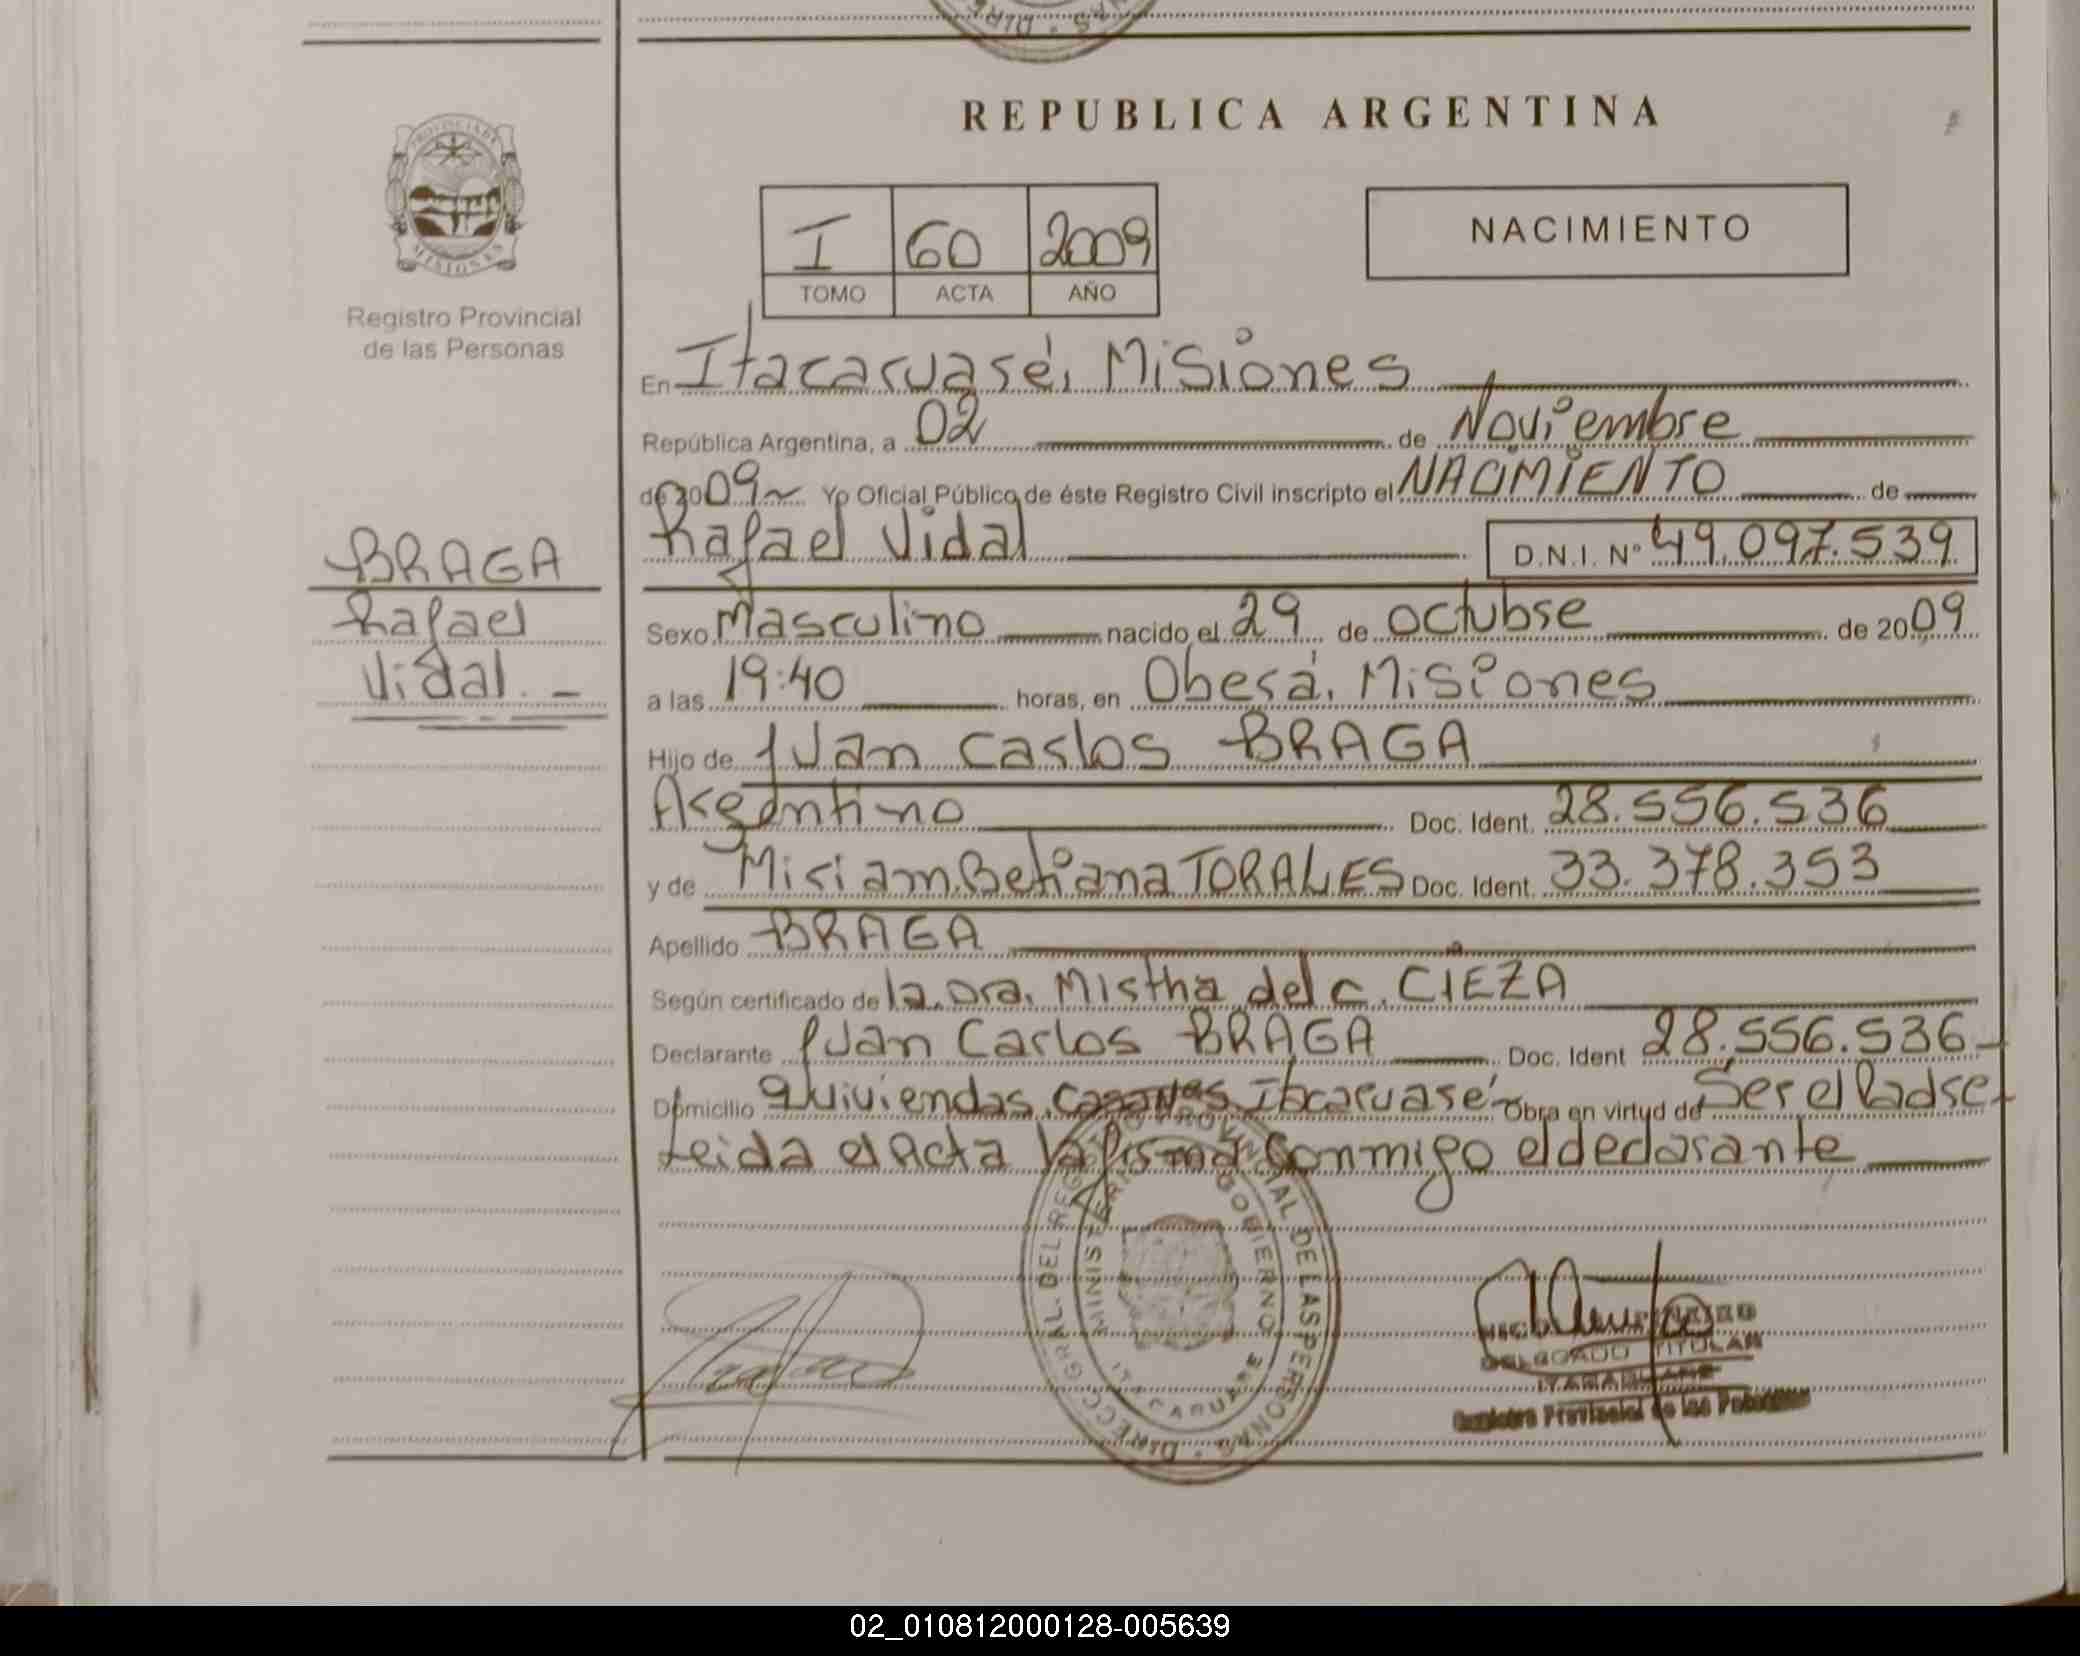 REPUBLICA ARGENTINA
PROVINCIA DE
MISIONES
Registro Provincial
de las Personas
NACIMIENTO
I 60 2009
TOMO ACTA AÑO
En Itacaruaré, Misiones
República Argentina, a 02 de Noviembre
de 2009 Yo Oficial Público de éste Registro Civil inscripto el NACIMIENTO de
Rafael Vidal D.N.I. Nº 49.097.539
BRAGA
Rafael
Vidal. -
Sexo Masculino nacido el 29 de octubre de 2009
a las 19:40 horas, en Oberá, Misiones
Hijo de Juan Carlos BRAGA
Argentino Doc. Ident. 28.556.536
y de Miriam Betiana TORALES Doc. Ident. 33.378.353
Apellido BRAGA
Según certificado de la Dra. Mirtha del C. CIEZA
Declarante Juan Carlos BRAGA Doc. Ident 28.556.536
Domicilio viviendas Itacaruaré Obra en virtud de Ser el Padre
Leida el Acta la firma Conmigo el declarante
DIRECC. GRAL. DEL REGISTRO PROVINCIAL DE LAS PERSONAS
MINISTERIO GOBIERNO
ITACARUARE
DELGADO TITULAR
ITACARUARE
Registro Provincial de las Personas
02_010812000128-005639